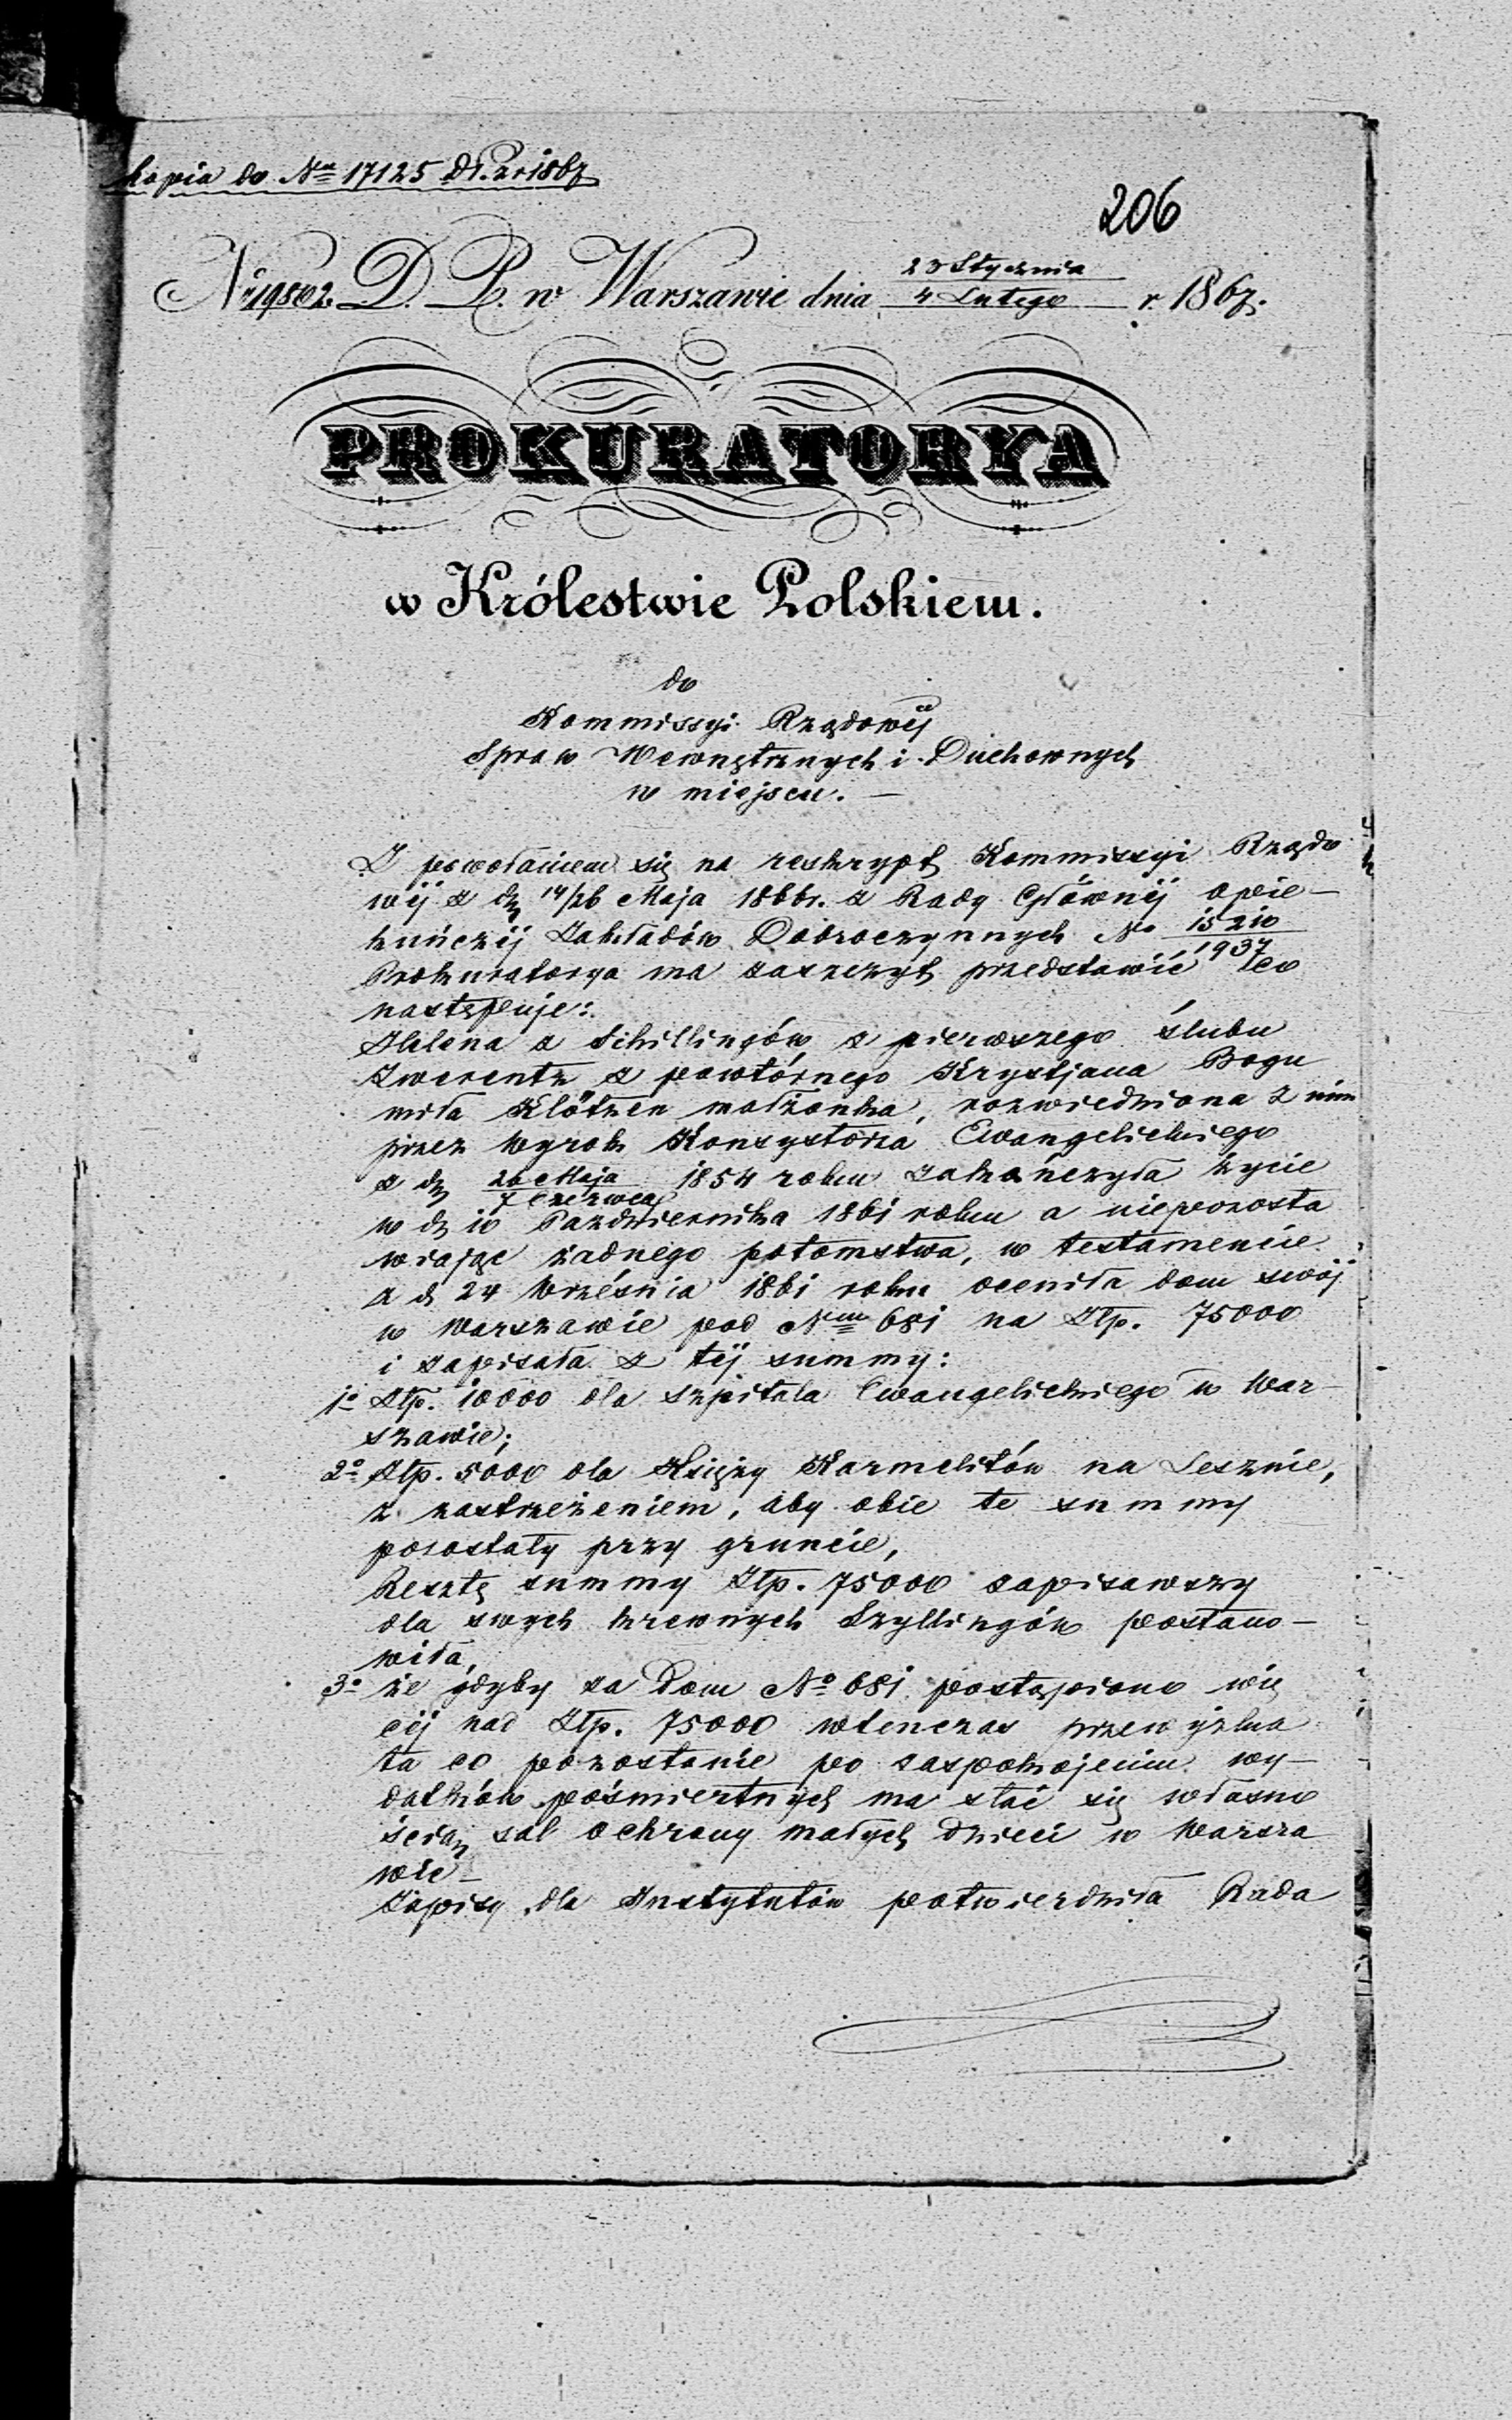 Kopia do Nru 17125 D.P. z r 1867
206
No 19802. D. P. w Warszawie dnia 23 Stycznia / 4 Lutego r. 1867.
PROKURATORYA
w Królestwie Polskiem.
do
Kommissyi Rządowéj
Spraw Wewnętrznych i Duchownych
w miejscu. —
Z powołaniem się na reskrypt Kommissyi Rządo
wéj z d. 14/26 Maja 1866 r. z Rady Głównéj Opie—
kuńczéj Zakładów Dobroczynnych No 15210/1937
Prokuratorya ma zaszczyt przedstawić co
następuje:
Helena z Schillingów z pierwszego ślubu
z powtórnego Krystjana Bogu
miła Klötzen małżonka, rozwiedziona z nim
przez wyrok Konsystorza Ewangelickiego
z d. 26 Maja / 7 Czerwca 1854 roku zakończyła życie
w d. 10 Października 1861 roku a niepozosta
wiając żadnego potomstwa, w testamencie
z d. 24 Września 1861 roku oceniła dom swój
w Warszawie pod Nrm 681 na Złp. 75000
i zapisała z téj summy:
1o Złp. 10000 dla szpitala Ewangelickiego w War—
szawie;
2o Złp. 5000 dla Księży Karmelitów na Lesznie,
z zastrzeżeniem, aby obie te summy
pozostały przy gruncie,
Resztę summy Złp. 75000 zapisawszy
dla swych krewnych Szyllingów postano—
wiła,
3o że gdyby za Dom No 681 postąpiono wię
céj nad Złp. 75000 wtenczas przewyżka
ta co pozostanie po zaspokojeniu wy—
datków pośmiertnych ma stać się własno
ścią sal ochrony małych dzieci w Warsza
wie—
Zapisy dla Instytutów potwierdziła Rada